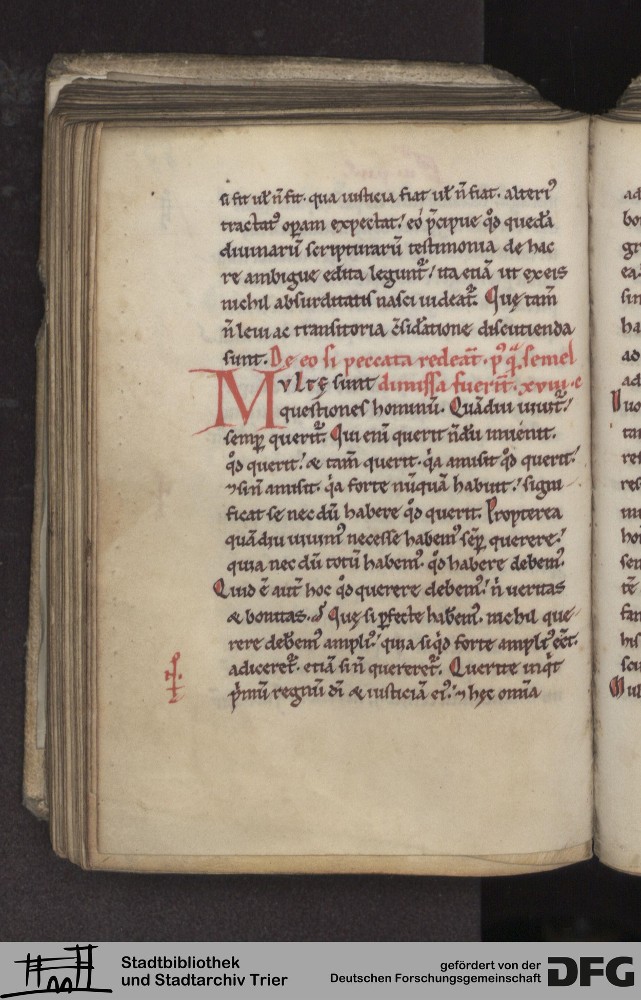 si fit ul̄ n̄ fit. qua iusticia fiat ul̄ n̄ fiat. alteriꝰ
tractatꝰ oꝑam expectat. eo p̄cipue qͦd queda
diuinarū scripturarū testimonia de hac
re ambigue edita legunt᷑. ita etiā ut ex eis
nichil absurditatis nasci uideat᷑. Quę tam̄
n̄ leui ac transitoria c̄sid̾atione discutienda
sunt. De eo si peccata redeāt. pꝰq̄ semel
Multę sunt dimissa fuerīt. xviii. c
questiones hominū. Quādiu uiuit᷑
semꝑ querit᷑. Qui enī querit n̄dū inuenit.
qͦd querit. & tam̄ querit. qͥa amisit qͦd querit.
⁊ si n̄ amisit. qͥa forte nūquā habuit. signi
ficat se nec dū habere qͦd querit. Propterea
quādiu uiuimꝰ necesse habemꝰ semꝑ querere.
quia nec dū totū habemꝰ. qͦd habere debemꝰ.
Quid ē aut̄ hoc qͦd querere debemꝰ. n̄ ueritas
& bonitas. Quę si ꝑfecte habemꝰ. nichil que
rere debemꝰ ampliꝰ. quia siqͥd forte ampliꝰ eēt.
adiceret᷑. etiā si n̄ quereret᷑. Querite inqͥt
pͥmū regnū dī & iusticiā eiꝰ. ⁊ hęc omīa
Stadtbibliothek
und Stadtarchiv Trier
gefördert von der
Deutschen Forschungsgemeinschaft
DFG